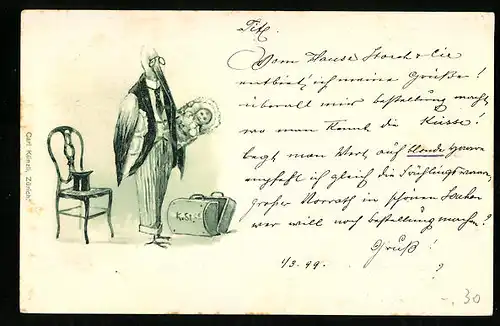 Tit.
Vom Hause Storch & Cie
entbiet' ich meine Grüße!
überall mir bestellung macht
wo man kennt die Küsse!
legt man Wert auf blonde Haare
empfehl ich gleich die Frühlingsware
großer Vorrath in schönen Sachen
wer will noch bestellung machen?
Gruß!
?
1/3.99.
K. St.
Carl Künzli, Zürich
-.30